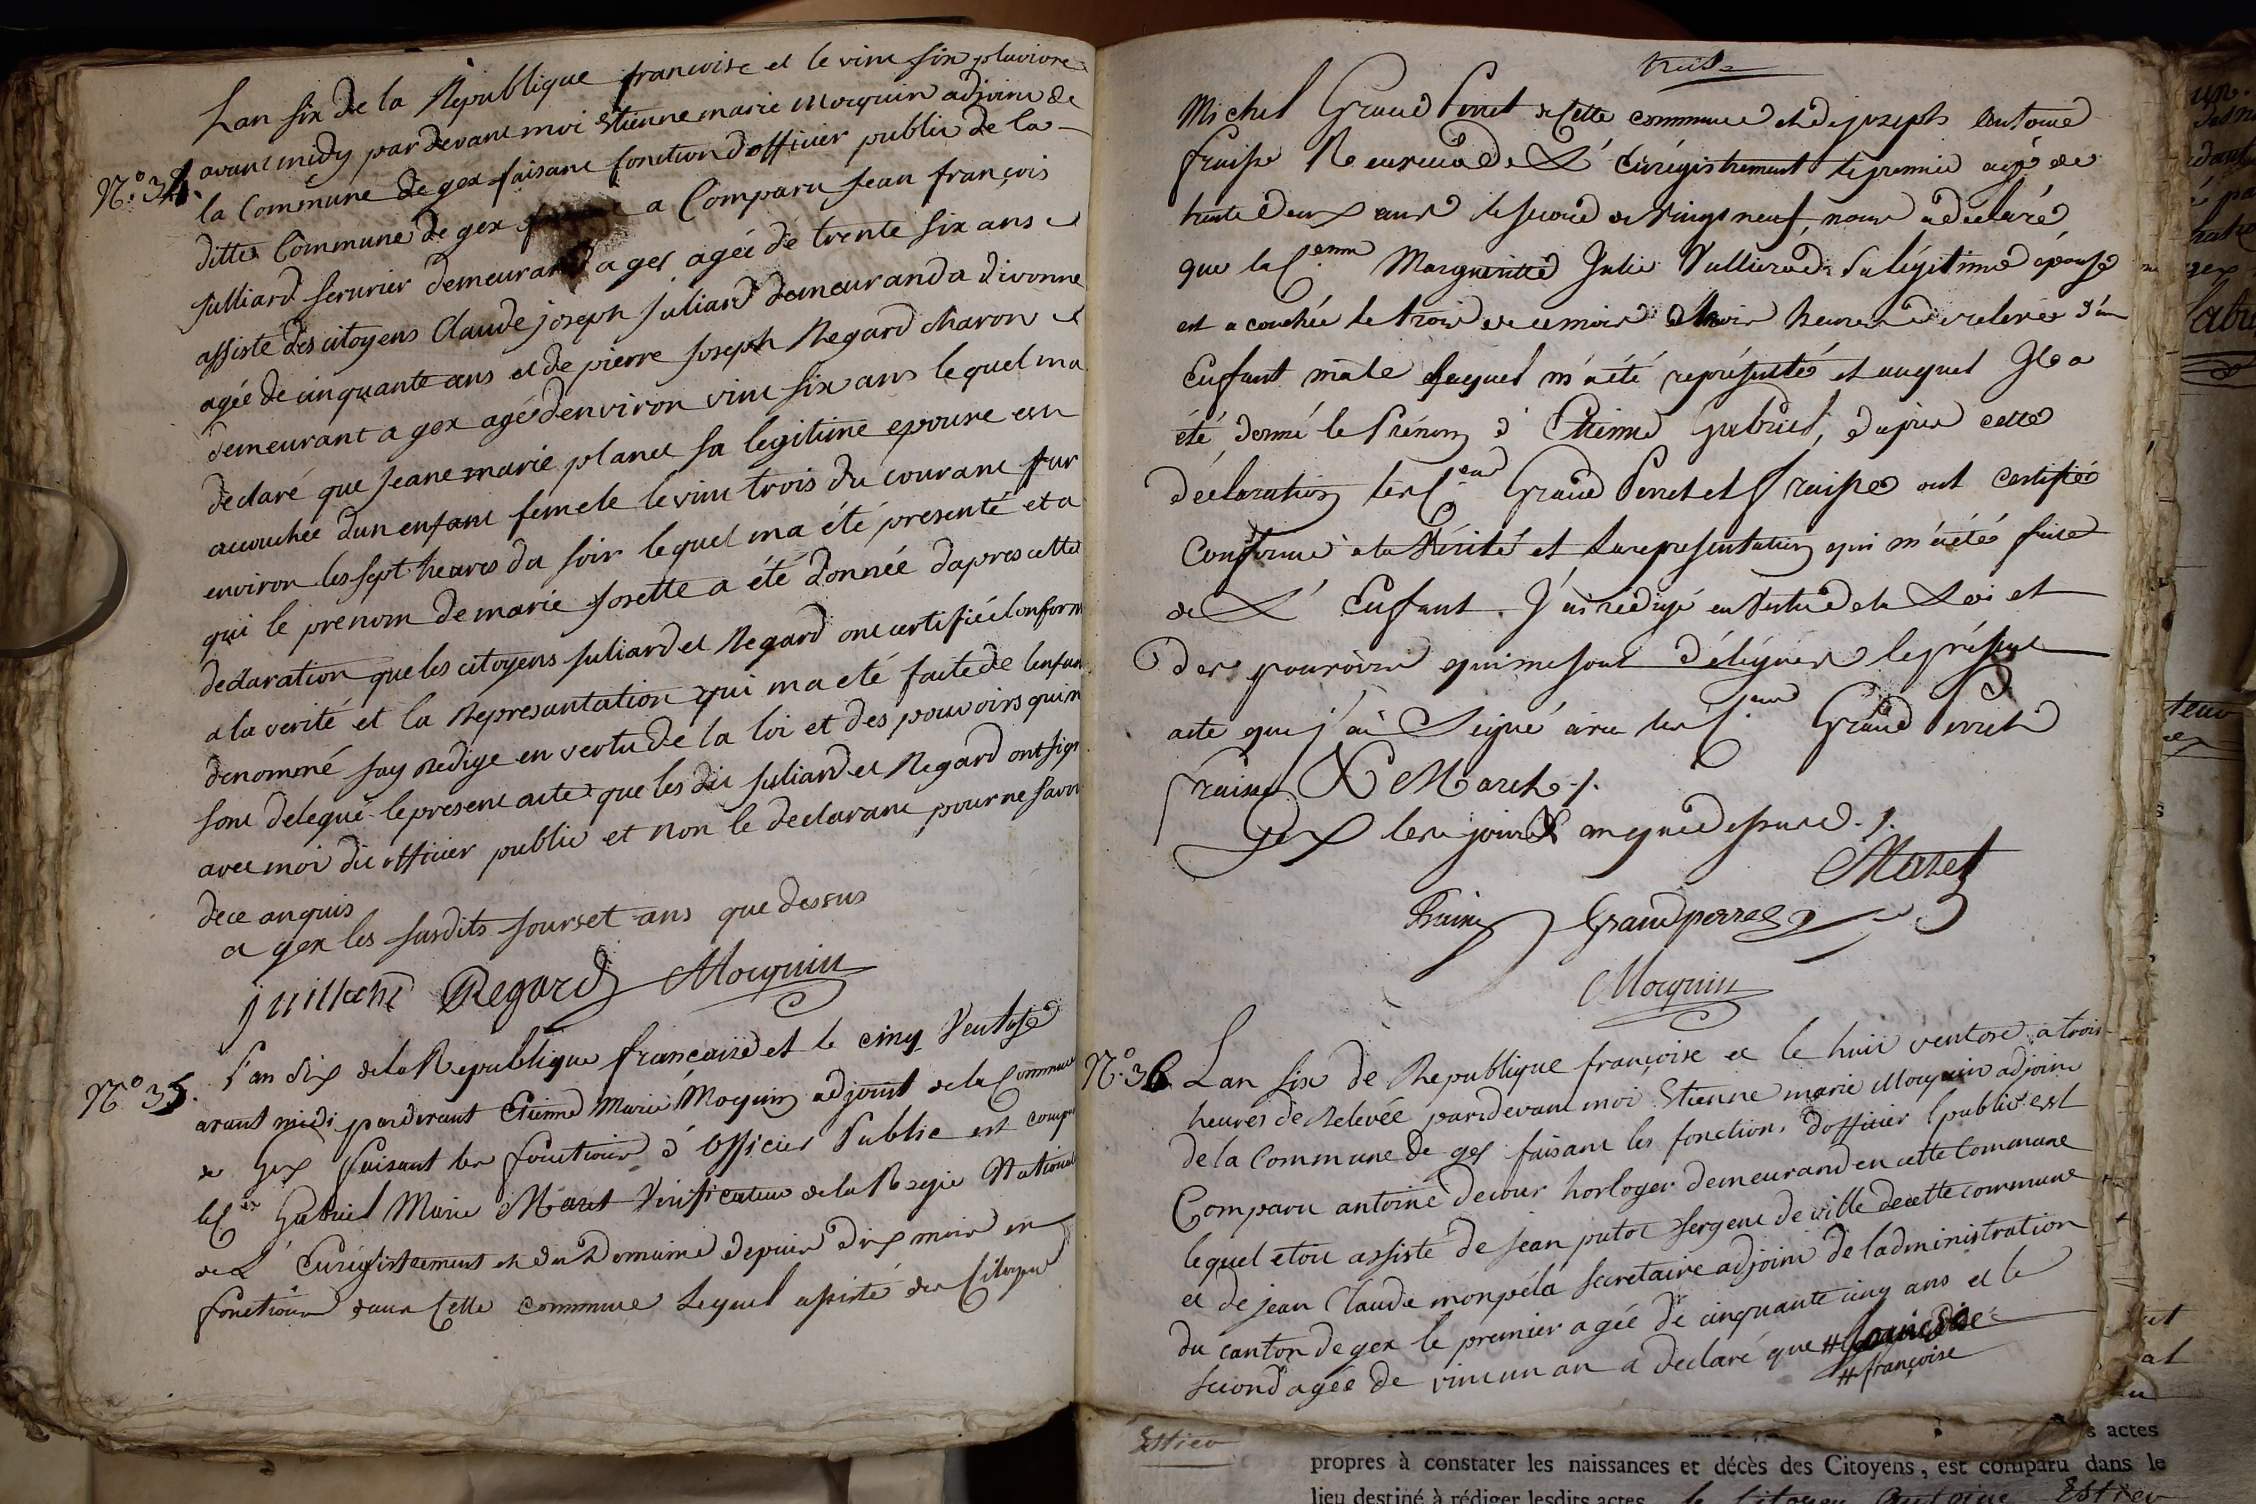 Lan six de la Republique francoise et le vint six pluviore
avant midy par devant moi Etienne marie Mocquin adjoint de
N.º 34.
la Commune de gex faisant fonction dofficier public de la
ditte Commune de gex a Comparu Jean françois
Julliard serurier demeurant a gex agée de trente six ans et
assisté des citoyens Claude joseph Juliard demeurand a divonne
agée de cinquante ans et de pierre Joseph Regard charon et
demeurant a gex agé denviron vint six ans lequel ma
declaré que Jeane marie planct sa legitime epouse est
accouchée dun enfant femele le vint trois du courant sur
environ les sept heures du soir lequel ma été presenté et a
qui le prenom de marie Josette a été donnée dapres cette
declaration que les citoyens Juliard et Regard ont certifiée Conform
a la verité et la Representation qui ma eté faite de lenfan
denommé Jay Redige en vertu de la loi et des pouvoirs qui m
sont delegué le present acte que les dit Juliard et Regard ont sign
avec moi dit officier public et non le declarant pour ne savoir
de ce anquis
a gex les susdits jours et ans que dessus
Regard Mocquin
N.º 35.
L'an Six de la Republique francaise et le cinq Ventose
avant midi pardevant Etienne Marie Moquin adjoint de la Commune
de Gex faisant les fonctions d'Officier Public est compa
le C.en Gabriel Marie Maret Verificateur de la Regie National
de L'Enregistrement et du Domaine depuis dix mois en
fonctions dans Cette commune Lequel assisté des Citoyens
Michel Grand Perret de Cette commune et de joseph Antoine
fraisse Receveur de L'Enregistrement le premier agé de
trente deux ans le second de vingt neuf, nous a déclaré
que la C.enne Margueritte Julie Vulliere sa légitime épouse
est accouchée le trois de ce mois a trois heures de relevée d'un
Enfant mâle lequel m'a été représenté et auquel Il a
été donné le Prénom d'Etienne Gabriel, d'après cette
déclaration les C.ens Grand Perret et Fraisse ont certifié
Conforme a la Vérité et la representation qui m'a été faite
de L'Enfant. J'ai rédigé en Vertu de la Loi et
des pouvoirs qui me sont délégués le présent
acte que j'ai Signé avec les C.ens Grand Perret
fraisse & Maret ./.
Gex les jour & an que dessus ./.
Maret
Fraisse Grandperret
Mocquin
N.º 36.
Lan six de Republique françoise et le huit ventose a trois
heures de Relevée pardevant moi Etienne marie Mocquin adjoint
de la Commune de gex faisant les fonctions dofficier public est
Comparu antoine decour horloger demeurand en cette Commune
lequel etoit assisté de Jean putot sergent de ville de cette commune
et de jean Claude monpéla secretaire adjoint de ladministration
du canton de gex le premier agée de cinquante cinq ans et le
second agée de vint un an a declaré que #
# françoise
s actes
propres à constater les naissances et décès des Citoyens, est comparu dans le
lieu destiné à rédiger lesdits actes